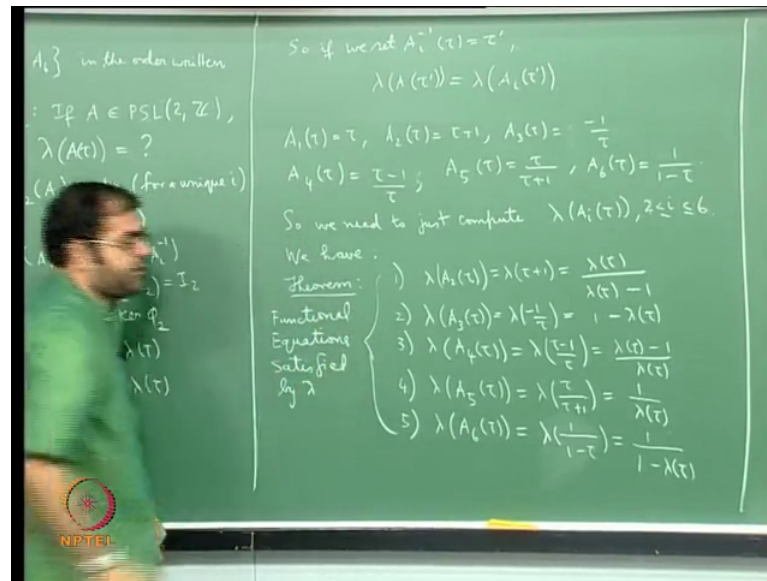 A₆} in the order written
: If A ∈ PSL(2, ℤ),
λ(A(τ)) = ?
(for a unique i)
= I₂
ker Φ₂
λ(τ)
λ(τ)
So if we set Aᵢ⁻¹(τ) = τ',
λ(A(τ')) = λ(Aᵢ(τ'))
A₁(τ) = τ, A₂(τ) = τ+1, A₃(τ) = -1/τ
A₄(τ) = (τ-1)/τ ; A₅(τ) = τ/(τ+1), A₆(τ) = 1/(1-τ).
So we need to just compute λ(Aᵢ(τ)), 2≤i≤6.
We have.
Theorem:
Functional
Equations
Satisfied
by λ
1) λ(A₂(τ)) = λ(τ+1) = λ(τ)/(λ(τ)-1)
2) λ(A₃(τ)) = λ(-1/τ) = 1-λ(τ)
3) λ(A₄(τ)) = λ((τ-1)/τ) = (λ(τ)-1)/λ(τ)
4) λ(A₅(τ)) = λ(τ/(τ+1)) = 1/λ(τ)
5) λ(A₆(τ)) = λ(1/(1-τ)) = 1/(1-λ(τ))
NPTEL